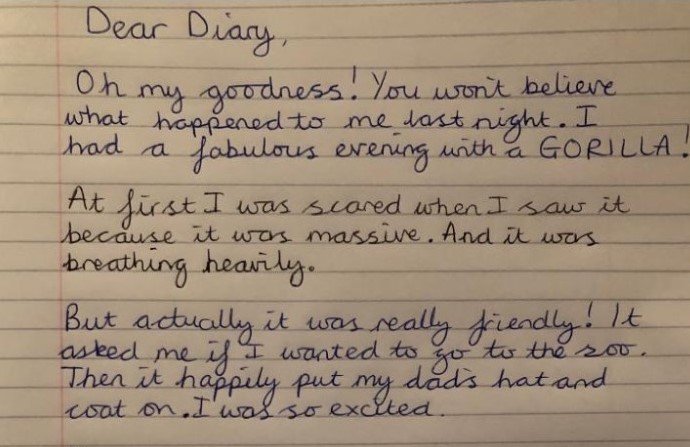 Dear Diary,
Oh my goodness! You won't believe
what happened to me last night. I
had a fabulous evening with a GORILLA!
At first I was scared when I saw it
because it was massive. And it was
breathing heavily.
But actually it was really friendly! It
asked me if I wanted to go to the zoo.
Then it happily put my dad's hat and
coat on. I was so excited.